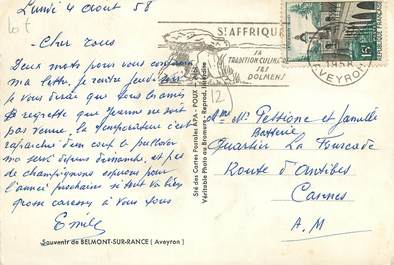 Lundi 4 août 58
Lot
Cher tous
Deux mots pour vous confirmer
ma lettre, je rentre jeudi
je vous dirai que tous les amis
regrette que Jeanne ne soit
pas venue, la température c'est
rafraichi d'un coup le pullover
ma servi depuis dimanche, et pas
de champignons espérons pour
l'année prochaine si tout va bien
gros caresses à vous tous
Emile
Souvenir de BELMONT-SUR-RANCE (Aveyron)
Sté des Cartes Postales APA - POUX -
Véritable Photo au Bromure - Reprod. Interdite
St AFFRIQUE
SA
TRADITION CULINAIRE
SES
DOLMENS
AVEYRON
15F
POSTES
12
Mme Mr Pettione et famille
Batterie
Quartier La Fourcade
Route d'Antibes
Cannes
A.M